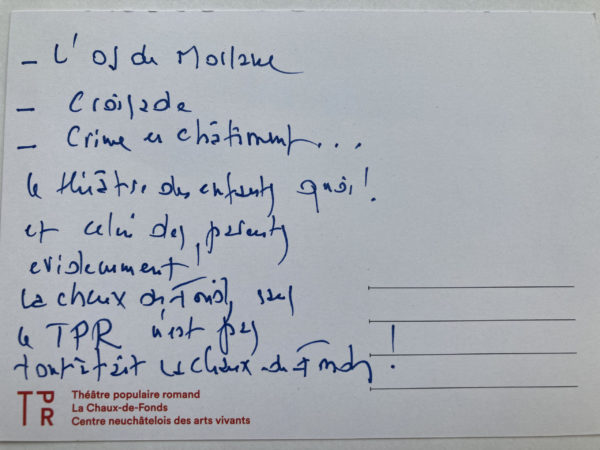 - L'os de Morlame
- Croisade
- Crime et châtiment...
le théâtre des enfants quoi!
et celui des parents
evidemment!
La chaux de Fonds sans
le TPR n'est pas
tout à fait La Chaux-de-Fonds!
TPR
Théâtre populaire romand
La Chaux-de-Fonds
Centre neuchâtelois des arts vivants